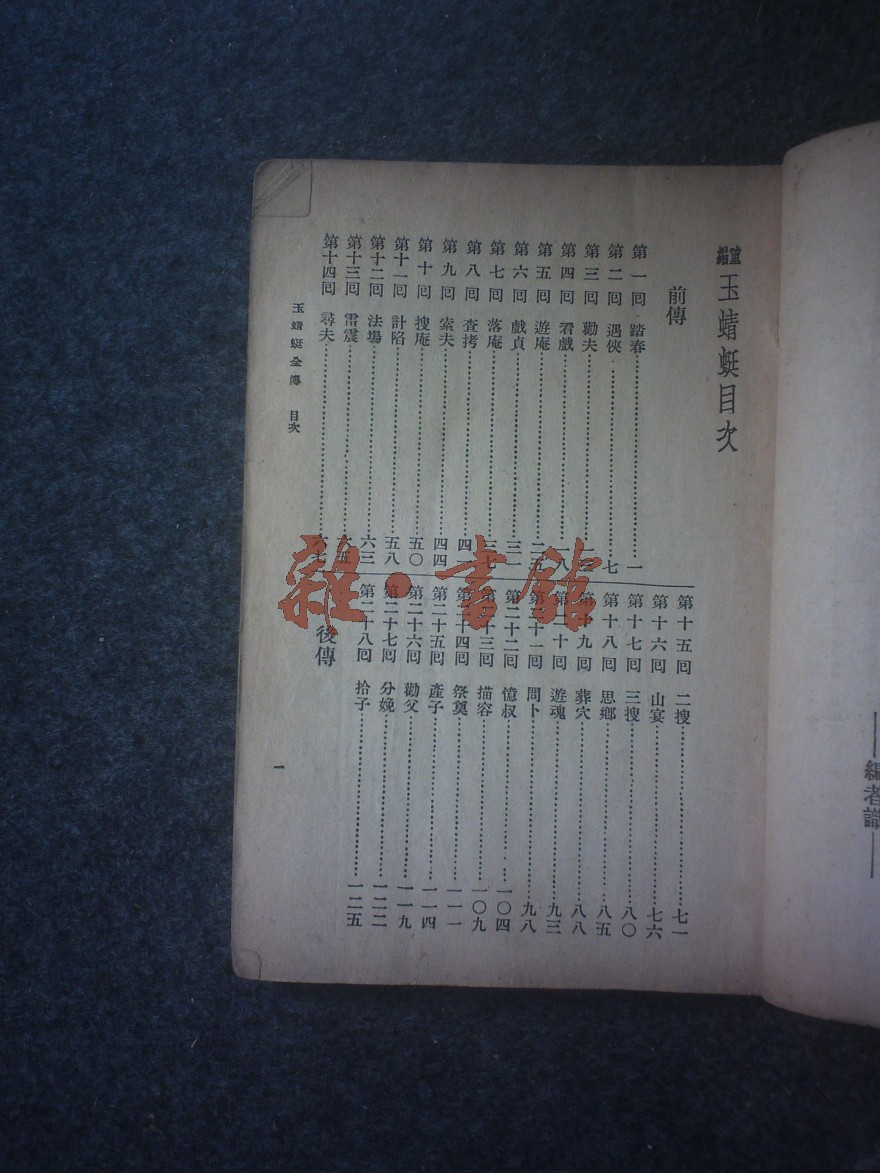 重編玉蜻蜓目次
前傳
第一回 踏春 一
第二回 遇俠 七
第三回 勸夫
第四回 看戲 一八
第五回 遊庵 二五
第六回 戲貞 三一
第七回 落庵 三七
第八回 查拷 四一
第九回 索夫 四四
第十回 搜庵 五〇
第十一回 計陷 五八
第十二回 法場 六三
第十三回 雷震
第十四回 尋夫 六七
第十五回 二搜 七一
第十六回 山宴 七六
第十七回 三搜 八〇
第十八回 思鄉 八五
第十九回 葬穴 八八
第二十回 遊魂 九三
第二十一回 問卜 九八
第二十二回 憶叔 一〇四
第二十三回 描容 一〇九
第二十四回 祭奠 一一一
第二十五回 產子 一一四
第二十六回 勸父 一一九
第二十七回 分娩 一二二
第二十八回 拾子 一二五
後傳
玉蜻蜓全傳 目次
一
編者識
雜·書館